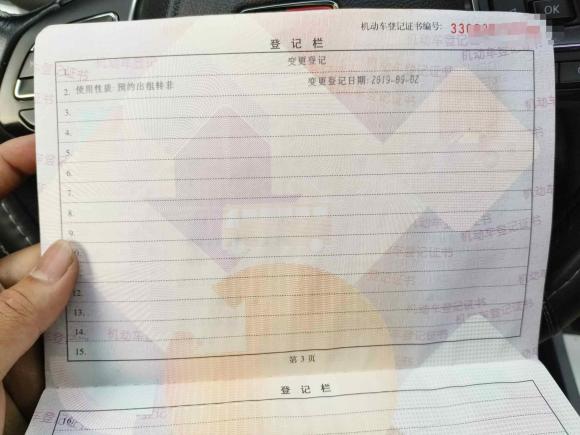 OK
机动车登记证书编号: 330
登 记 栏
1. 变更登记
2. 使用性质:预约出租转非 变更登记日期:2019-09-02
3.
4.
5.
6.
7.
8.
9.
12.
13.
14.
15.
第 3 页
登 记 栏
16.
机动车登记证书